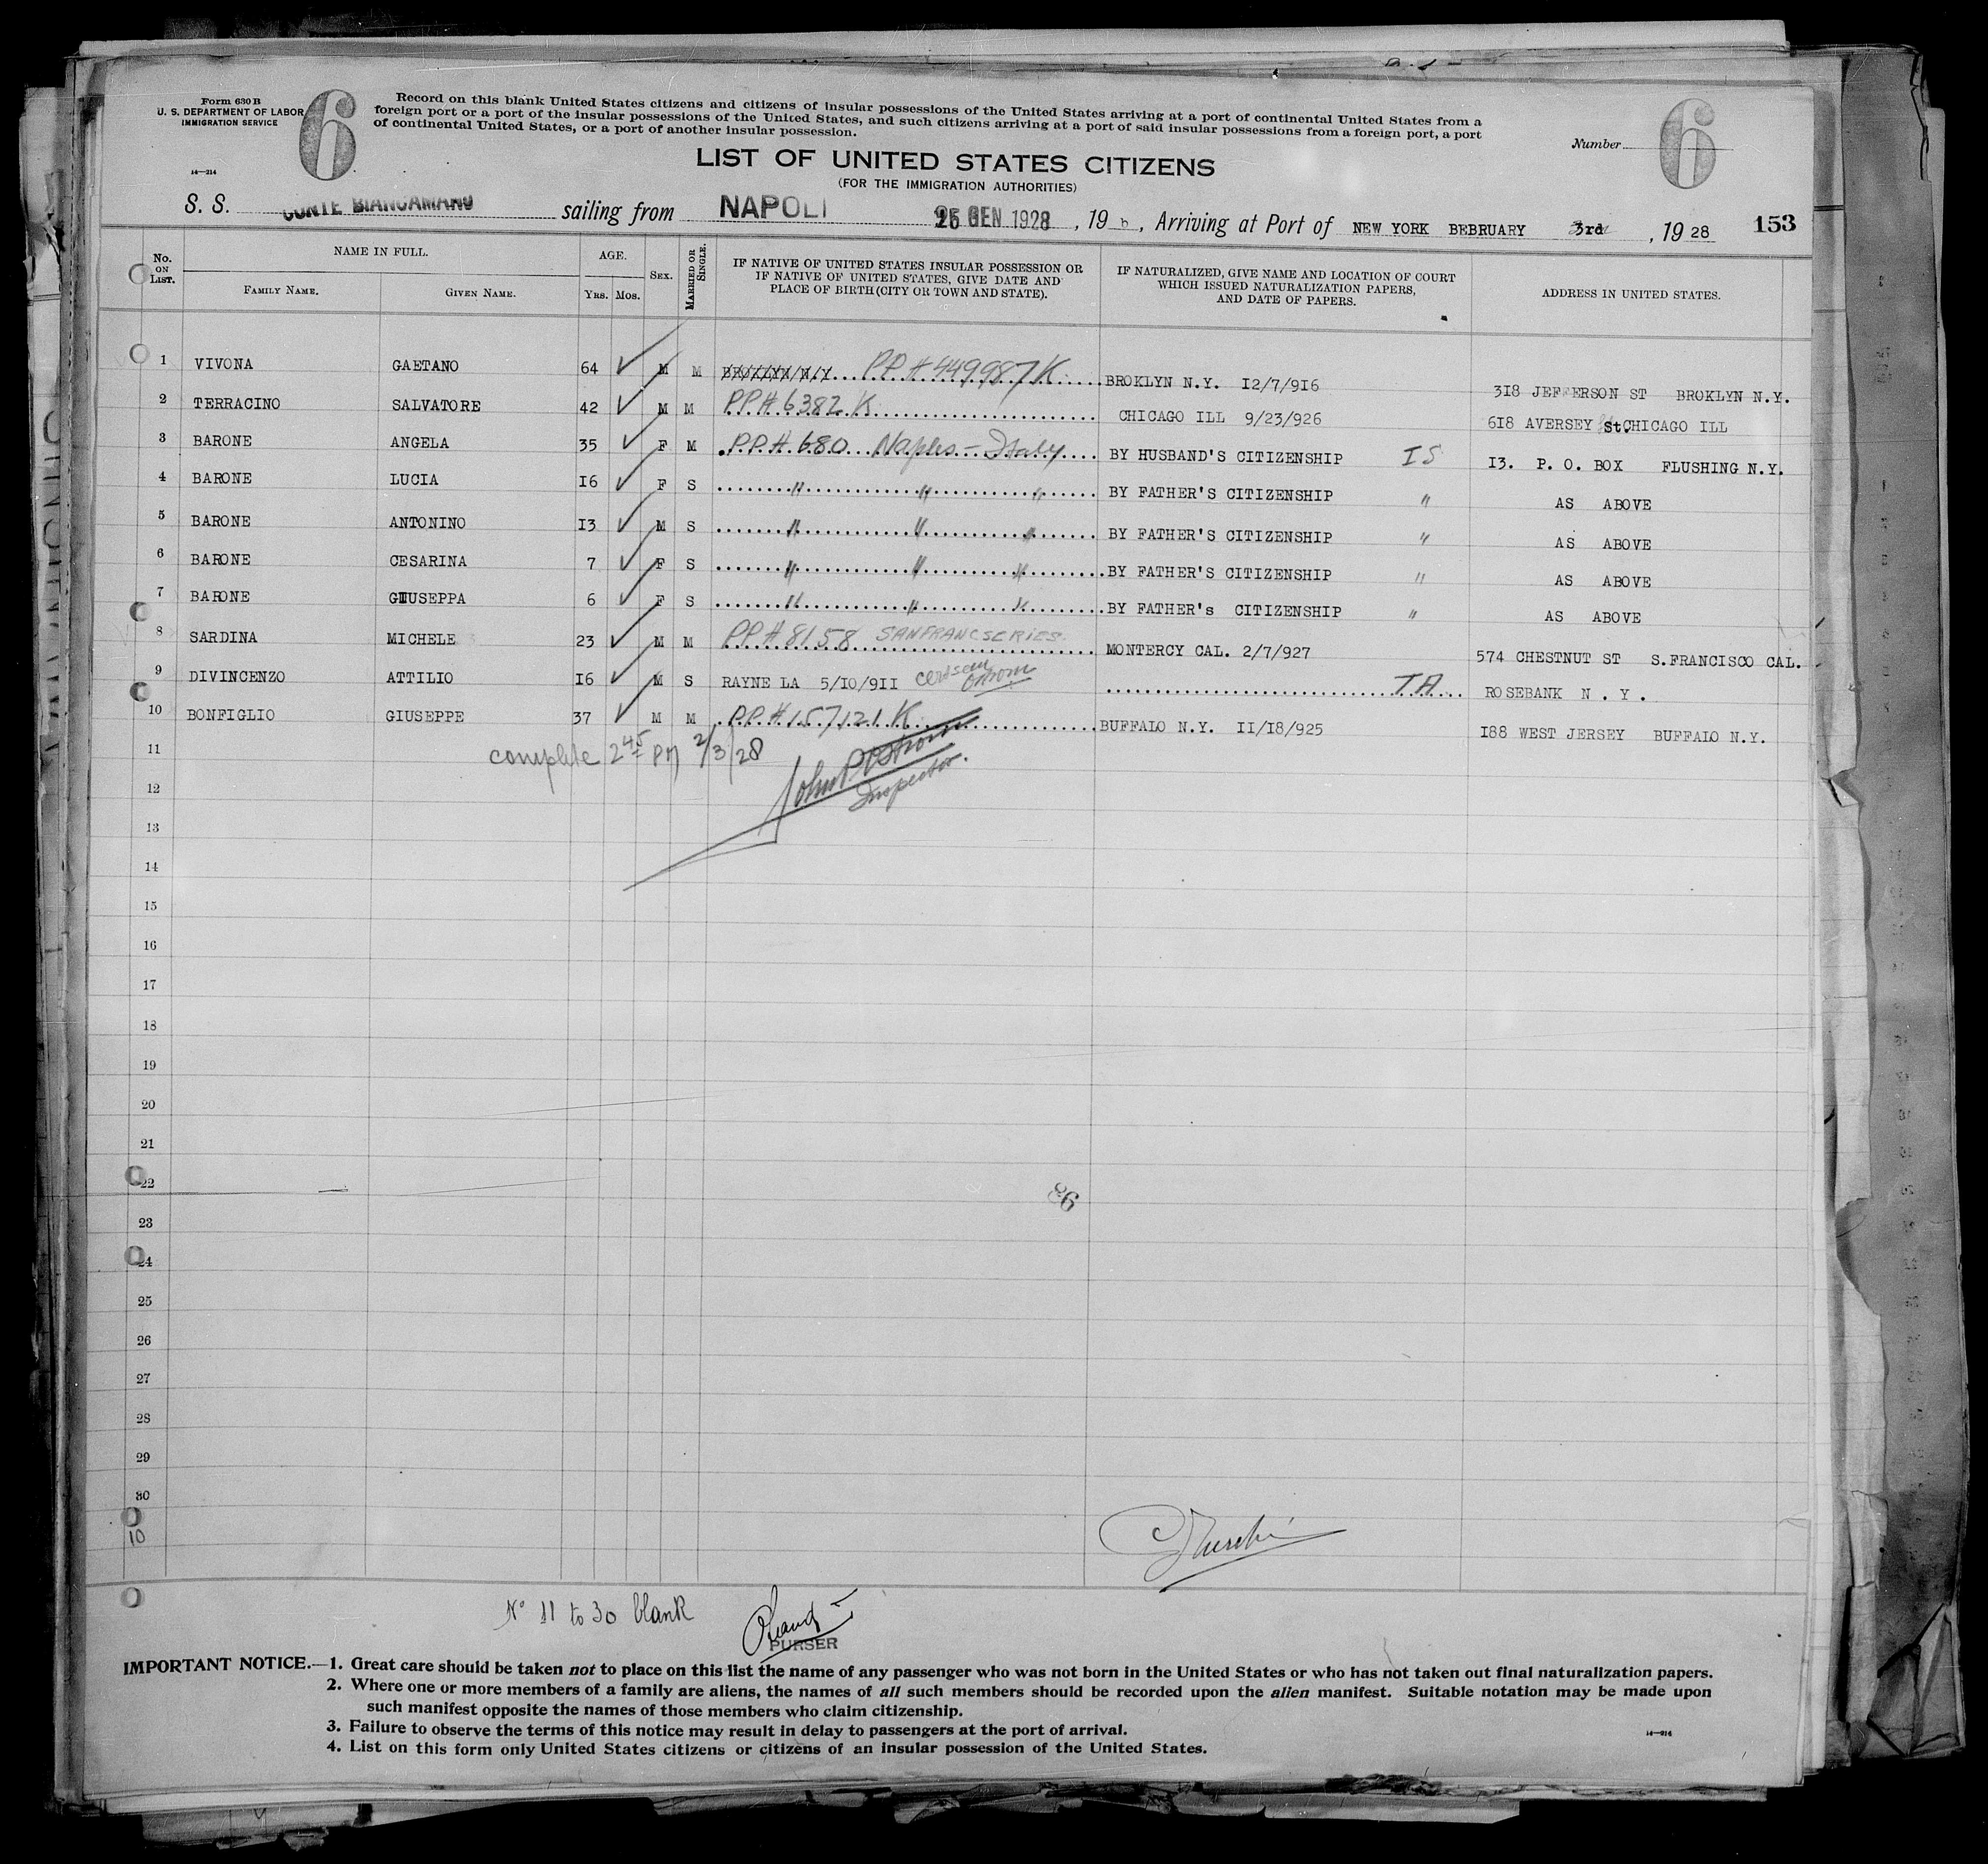 Form 630 B
U. S. DEPARTMENT OF LABOR
IMMIGRATION SERVICE
14—214
6
Record on this blank United States citizens and citizens of insular possessions of the United States arriving at a port of continental United States from a
foreign port or a port of the insular possessions of the United States, and such citizens arriving at a port of said insular possessions from a foreign port, a port
of continental United States, or a port of another insular possession.
Number
6
LIST OF UNITED STATES CITIZENS
(FOR THE IMMIGRATION AUTHORITIES)
S. S. CONTE BIANCAMANO sailing from NAPOLI 25 GEN 1928, 19 , Arriving at Port of NEW YORK BEBRUARY 3rd, 1928 153
No. ON LIST. NAME IN FULL. FAMILY NAME. GIVEN NAME. AGE. YRS. MOS. SEX. MARRIED OR SINGLE. IF NATIVE OF UNITED STATES INSULAR POSSESSION OR IF NATIVE OF UNITED STATES, GIVE DATE AND PLACE OF BIRTH (CITY OR TOWN AND STATE). IF NATURALIZED, GIVE NAME AND LOCATION OF COURT WHICH ISSUED NATURALIZATION PAPERS, AND DATE OF PAPERS. ADDRESS IN UNITED STATES.
1 VIVONA GAETANO 64 M M PP# 449987K BROKLYN N.Y. I2/7/9I6 3I8 JEFFERSON ST BROKLYN N.Y.
2 TERRACINO SALVATORE 42 M M PP# 6382 K CHICAGO ILL 9/23/926 6I8 AVERSEY St. CHICAGO ILL
3 BARONE ANGELA 35 F M P.P.# 680 Naples - Italy BY HUSBAND'S CITIZENSHIP IS I3. P. O. BOX FLUSHING N.Y.
4 BARONE LUCIA I6 F S " " " BY FATHER'S CITIZENSHIP " AS ABOVE
5 BARONE ANTONINO I3 M S " " " BY FATHER'S CITIZENSHIP " AS ABOVE
6 BARONE CESARINA 7 F S " " " BY FATHER'S CITIZENSHIP " AS ABOVE
7 BARONE GIUSEPPA 6 F S " " " BY FATHER's CITIZENSHIP " AS ABOVE
8 SARDINA MICHELE 23 M M PP# 8158 SANFRANCSERIES MONTERCY CAL. 2/7/927 574 CHESTNUT ST S.FRANCISCO CAL.
9 DIVINCENZO ATTILIO I6 M S RAYNE LA 5/I0/9II IA ROSEBANK N.Y.
10 BONFIGLIO GIUSEPPE 37 M M P.P.# 157121 K BUFFALO N.Y. II/I8/925 I88 WEST JERSEY BUFFALO N.Y.
11 complete 2 45 PM 2/3/28
Inspector.
12
13
14
15
16
17
18
19
20
21
22
86
23
24
25
26
27
28
29
30
10
No 11 to 30 blank
PURSER
IMPORTANT NOTICE.—1. Great care should be taken not to place on this list the name of any passenger who was not born in the United States or who has not taken out final naturalization papers.
2. Where one or more members of a family are aliens, the names of all such members should be recorded upon the alien manifest. Suitable notation may be made upon
such manifest opposite the names of those members who claim citizenship.
3. Failure to observe the terms of this notice may result in delay to passengers at the port of arrival.
4. List on this form only United States citizens or citizens of an insular possession of the United States.
14—214